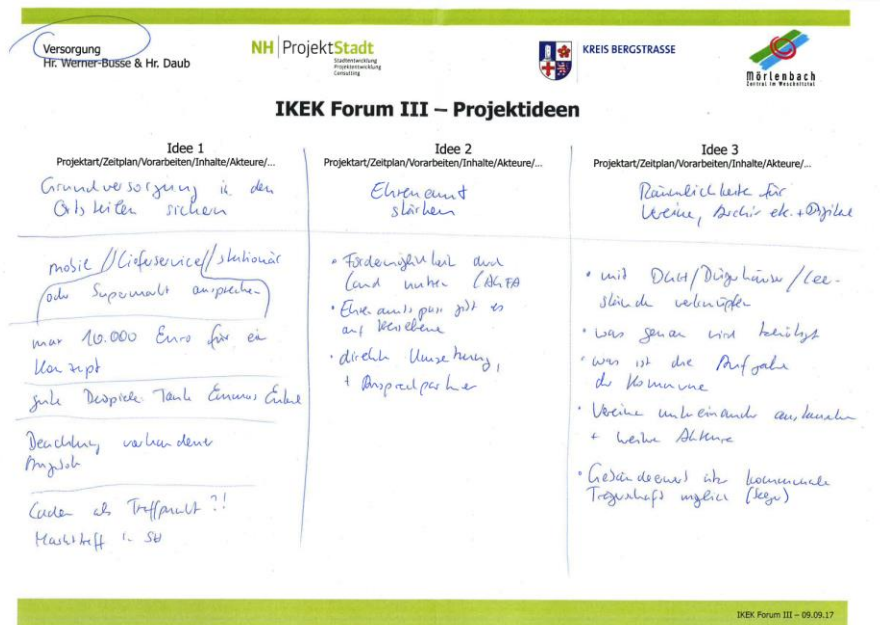 Versorgung
Hr. Werner-Busse & Hr. Daub
NH ProjektStadt
Stadtentwicklung
Projektentwicklung
Consulting
KREIS BERGSTRASSE
Mörlenbach
Zentral im Weschnitztal
IKEK Forum III – Projektideen
Idee 1
Projektart/Zeitplan/Vorarbeiten/Inhalte/Akteure/...
Grundversorgung in den
Ortsteilen sichern
mobil // Lieferservice // stationär
oder Supermarkt ansprechen
max 10.000 Euro für ein
Konzept
gute Beispiele Tante Emmas Enkel
Beachtung vorhandener
Angebote
Laden als Treffpunkt ?!
Markttreff in SH
Idee 2
Projektart/Zeitplan/Vorarbeiten/Inhalte/Akteure/...
Ehrenamt
stärken
• Fördermöglichkeit durch
Land nutzen
• Ehrenamtspass gibt es
auf Kreisebene
• direkte Umsetzung,
+ Ansprechpartner
Idee 3
Projektart/Zeitplan/Vorarbeiten/Inhalte/Akteure/...
Räumlichkeite für
Vereine, Archiv etc. +
• mit / Bürgerhäuser / Lee-
stände verknüpfen
• was genau wird benötigt
• was ist die Aufgabe
der Kommune
• Vereine untereinander austauschen
+ weitere Akteure
• kommunale
Trägerschaft möglich
IKEK Forum III – 09.09.17